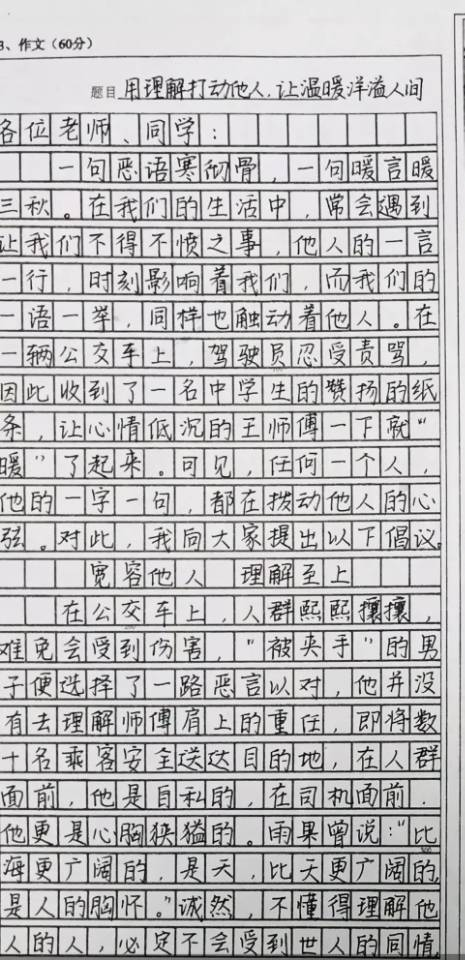 3、作文(60分)
题目 用理解打动他人,让温暖洋溢人间
各位老师、同学:
一句恶语寒彻骨,一句暖言暖
三秋。在我们的生活中,常会遇到
让我们不得不愤之事,他人的一言
一行,时刻影响着我们,而我们的
一语一举,同样也触动着他人。在
一辆公交车上,驾驶员忍受责骂,
因此收到了一名中学生的赞扬的纸
条,让心情低沉的王师傅一下就“
暖”了起来。可见,任何一个人,
他的一字一句,都在拨动他人的心
弦。对此,我向大家提出以下倡议。
宽容他人 理解至上
在公交车上,人群熙熙攘攘,
难免会受到伤害,“被夹手”的男
子便选择了一路恶言以对,他并没
有去理解师傅肩上的重任,即将数
十名乘客安全送达目的地,在人群
面前,他是自私的,在司机面前.
他更是心胸狭隘的。雨果曾说:“比
海更广阔的,是天,比天更广阔的,
是人的胸怀。”诚然,不懂得理解他
人的人,必定不会受到世人的同情,